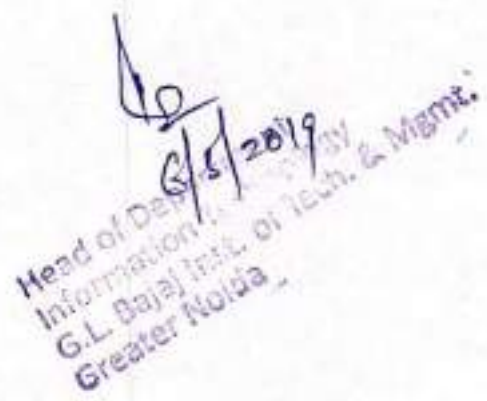 6/5/2019
Head of
Information
G.L. Bajaj Inst. of Tech. & Mgmt.
Greater Noida